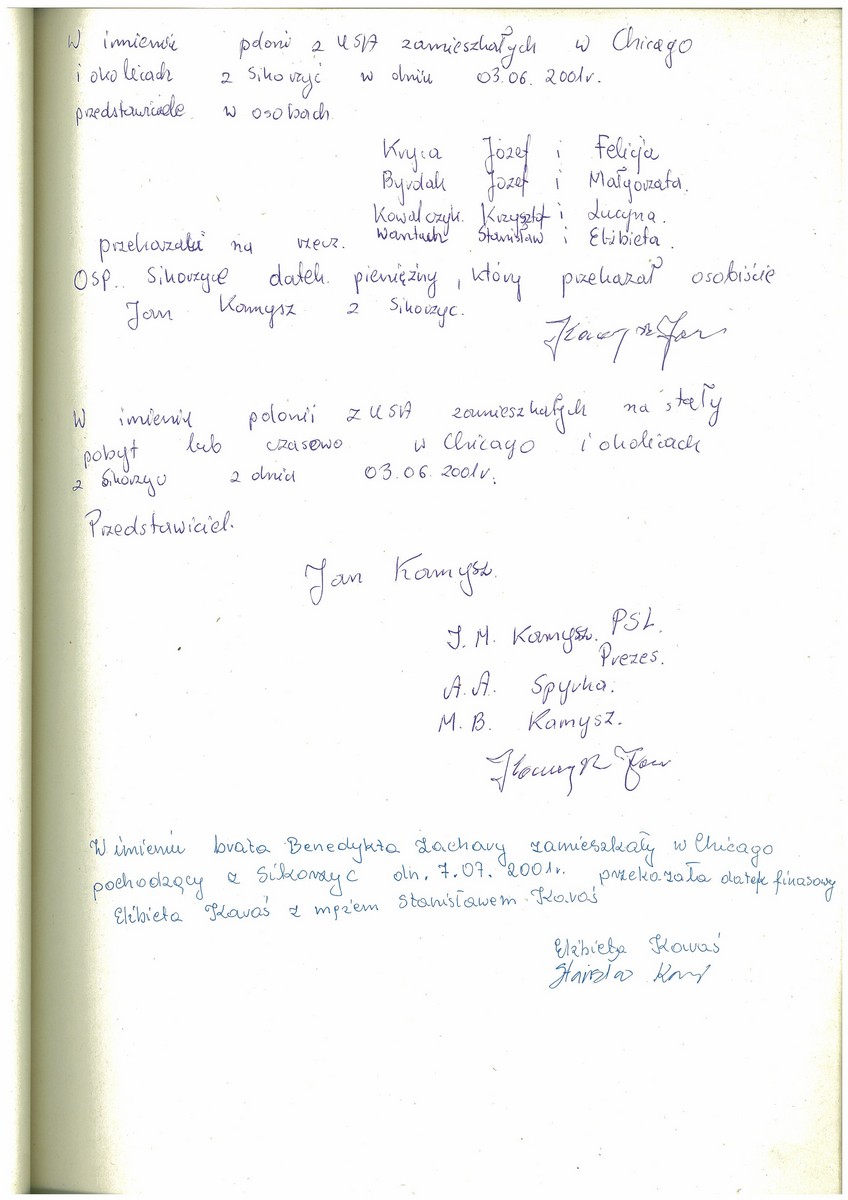 W imieniu poloni z USA zamieszkałych w Chicago
i okolicach z Sikorzyć w dniu 03.06. 2001r.
przedstawiciele w osobach
Kryca Józef i Felicja
Byrdak Józef i Małgorzata.
Kowalczyk. Krzysztof i Lucyna.
Wantuch Stanisław i Elżbieta.
przekazali na rzecz.
OSP. Sikorzyce datek pieniężny, który przekazał osobiście
Jan Kamysz z Sikorzyc.
W imieniu polonii z USA zamieszkałych na stały
pobyt lub czasowo w Chicago i okolicach
z Sikorzyc z dnia 03.06. 2001r.
Przedstawiciel.
Jan Kamysz.
J. M. Kamysz. PSL.
Prezes.
A. A. Spyrka.
M. B. Kamysz.
W imieniu brata Benedykta Zachary zamieszkały w Chicago
pochodzący z Sikorzyc dn. 7.07. 2001r. przekazała datek finasowy
Elżbieta Karaś z mężem Stanisławem Karaś
Elżbieta Karaś